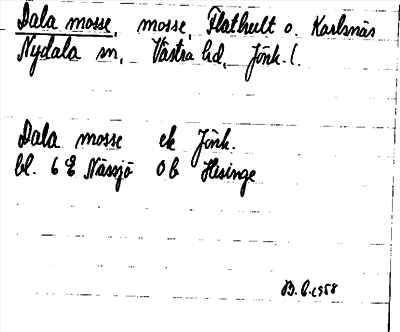 Dala mosse, mosse, Flathult o. Karlsnäs
Nydala sn, Västra hd, Jönk. l.
Dala mosse ek Jönk.
bl. 6 E Nässjö 0 b Hisinge
B. 1958